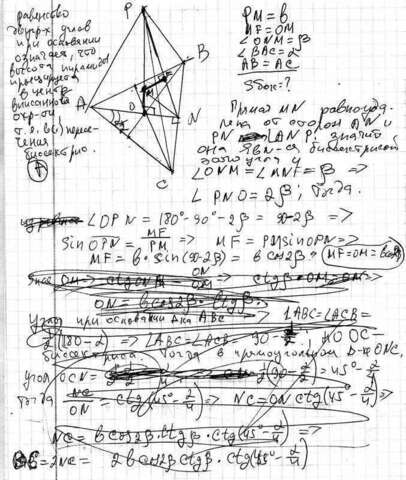 равенство
двухгр углов
при основании
означает, что
высота пирамиды
проецируется
в центр
вписанной
окр-ти
т.е. в(.) пересе-
чения
биссектрис.
P
A
B
C
O
N
M
F
PM = b
MF = OM
∠ONM = β
∠BAC = α
AB = AC
Sбок = ?
Прямая MN равноуда-
лена от сторон AN и
PN ∠ANP, значит
она явл-ся биссектрисой
этого угла
∠ONM = ∠MNF = β =>
∠PNO = 2β; Тогда
∠OPN = 180° - 90° - 2β = 90 - 2β =>
sin OPN = MF/PM => MF = PM sin OPN =>
MF = b · sin(90 - 2β) = b cos 2β => MF = OM = b cos 2β
ctg ONM = ON/OM => ctg β · OM = ON =>
ON = b cos 2β · ctg β.
Угол при основании Δка ABC => ∠ABC = ∠ACB =
1/2 (180 - α) => ∠ABC = ∠ACB = 90 - α/2, но OC -
биссектриса. Тогда в прямоугольном Δ-ке ONC,
угол OCN = 1/2 (90 - α/2) = 45° - α/4
Тогда NC/ON = ctg(45° - α/4) => NC = ON ctg(45° - α/4)
NC = b cos 2β · ctg β · ctg(45° - α/4) =>
BC = 2NC = 2b cos 2β ctg β · ctg(45° - α/4)